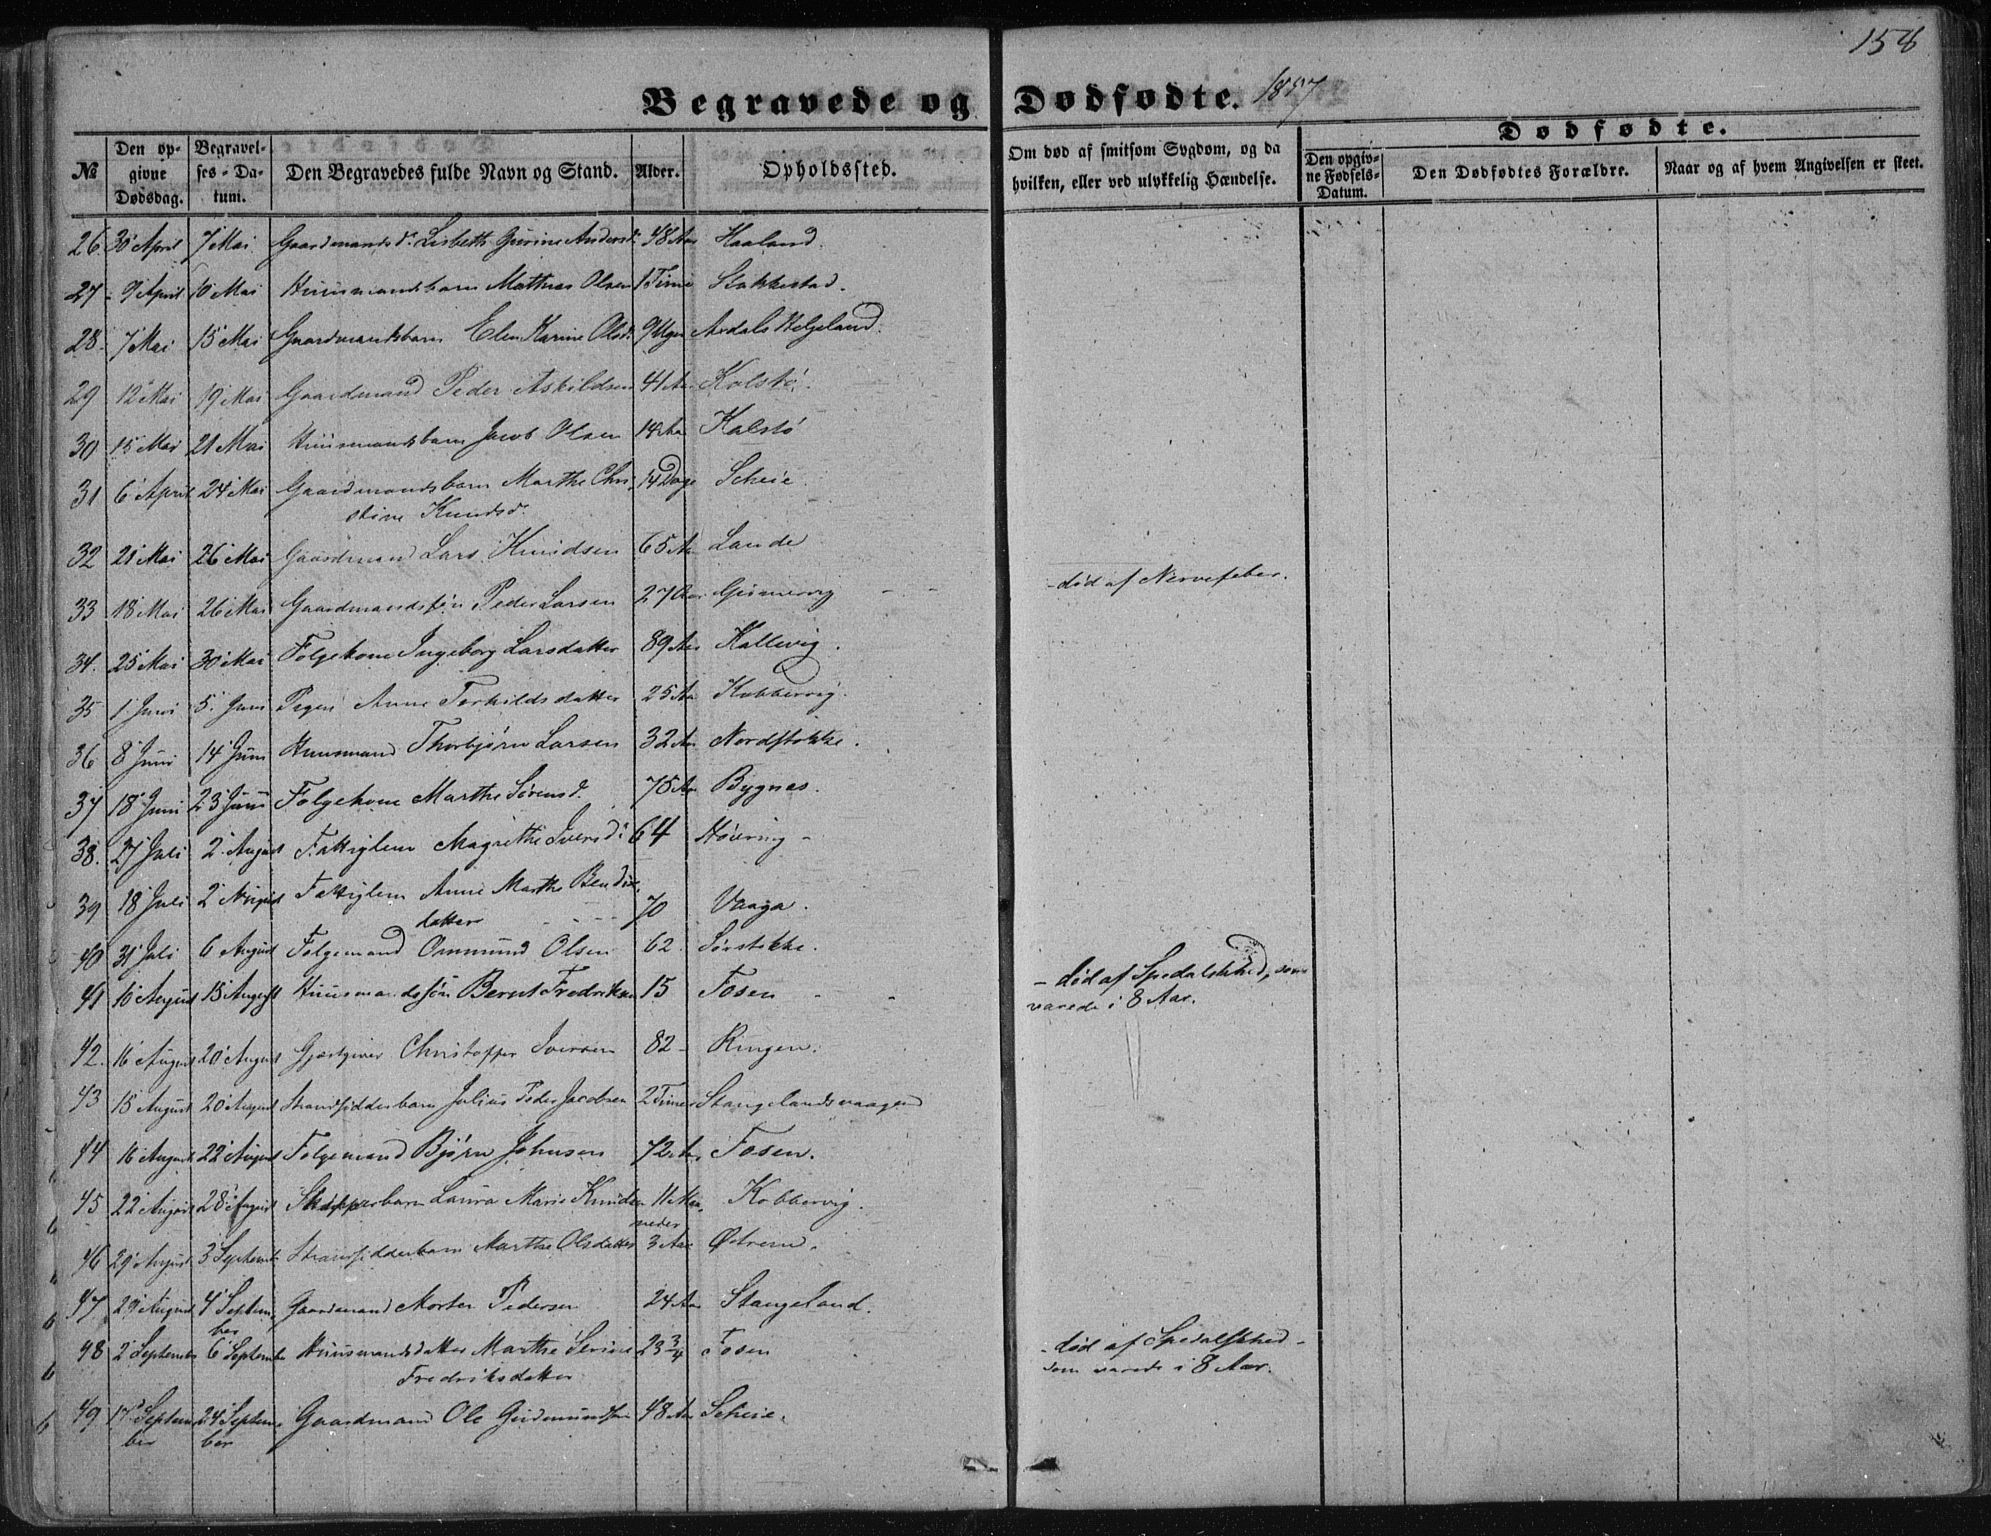 158
Begravede og Dødfødte. 1857
Dødfødte.
№ Den opgivne Dødsdag. Begravelses-Datum. Den Begravedes fulde Navn og Stand. Alder. Opholdssted. Om død af smitsom Sygdom, og da hvilken, eller ved ulykkelig Hændelse. Den opgivne Fødsels-Datum. Den Dødfødtes Forældre. Naar og af hvem Angivelsen er skeet.
26. 30 April 7 Mai Gaardmandsd. Lisbeth Gurine Andersd. 48 Aar Haaland.
27 9 April 10 Mai Huusmandsbarn Mathias Olsen 1 Time Stokkestad.
28. 7 Mai 15 Mai Gaardmandsbarn Elen Karine Olsd. 9 Uger Ardals Helgeland.
29 12 Mai 19 Mai Gaardmand Peder Askildsen 41 Aar Kolstø.
30 15 Mai 21 Mai Huusmandsbarn Jacob Olsen 14 Aar Kalstø
31 6 April 24 Mai Gaardmandsbarn Marthe Chri- 14 Dage Scheie.
stine Knudsd.
32 21 Mai 26 Mai Gaardmand Lars Knudsen 65 Aar Lande
33 18 Mai 26 Mai Gaardmandssøn Peder Larsen 27 Aar Grinnervig - - - død af Nervefeber.
34. 25 Mai 30 Mai Følgekone Ingeborg Larsdatter 89 Aar Kallevig.
35 1 Juni 5 Juni Pigen Anne Torkildsdatter 25 Aar Kobbervig.
36 8 Juni 14 Juni Huusmand Thorbjørn Larsen 32 Aar Nordstokke.
37 18 Juni 23 Juni Følgekone Marthe Sørensd. 75 Aar Bygnes.
38. 27 Juli 2 August Fattiglem Magrethe Iversd. 64 Høievig -
39 18 Juli 2 August Fattiglem Anne Marthe Bendix-
datter - - - - 70 Vaaga.
40 31 Juli 6 August Følgemand Ommund Olsen 62 Sørstokke.
41 10 August 15 August Huusmandssøn Bernt Fredriksen 15 Fosen - - - død af Spedalskhed, som
varede i 8 Aar.
42. 16 August 20 August Gjæstgiver Christopher Iversen 82 - Ringen.
43 15 August 20 August Strandsidderbarn Julius Peder Jacobsen 2 Timer Stangelandsvaagen
44 16 August 22 August Følgemand Bjørn Johnsen 72 Aar Fosen.
45 22 August 28 August Skipperbarn Laura Marie Knudsen 11 Maa- Kobbervig.
neder
46 29 August 3 September Strandsidderbarn Marthe Olsdatter 3 Aar Østrem.
47 29 August 4 Septem- Gaardmand Morten Pedersen 24 Aar Stangeland.
ber
48 2 September 6 September Huusmandsdatter Marthe Serine 23 3/4 Fosen - død af Spedalskhed -
Fredriksdatter som varede i 8 Aar.
49 17 Septem- 24 Septem- Gaardmand Ole Gudmundsen 48 Aar Scheie.
ber ber